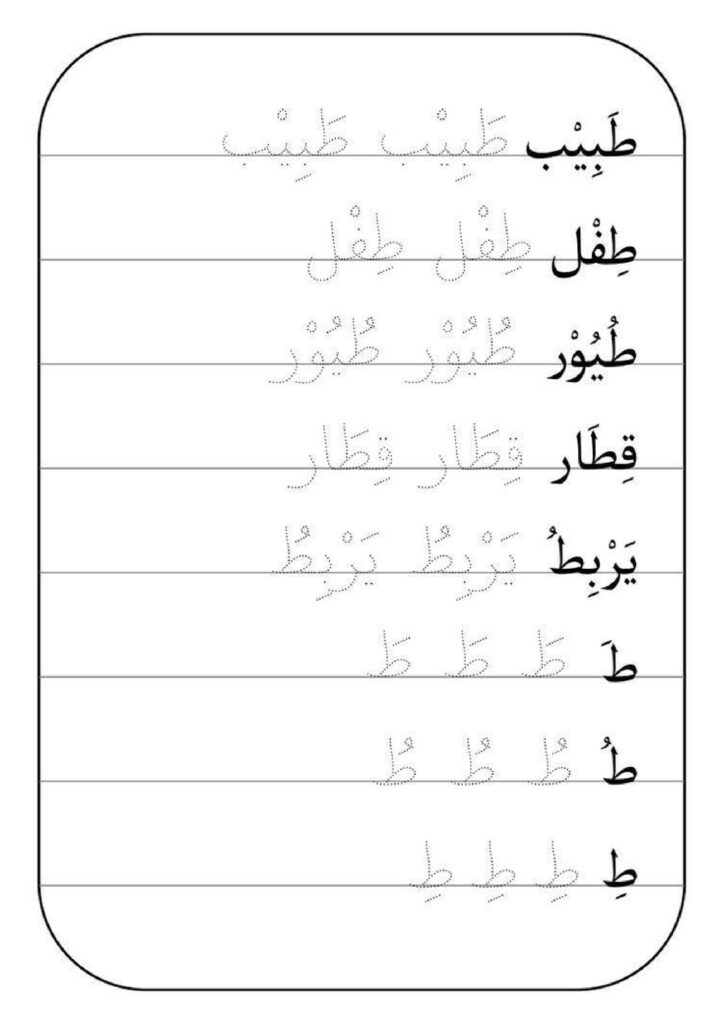 طَبِيْب طَبِيْب طَبِيْب
طِفْل طِفْل طِفْل
طُيُوْر طُيُوْر طُيُوْر
قِطَار قِطَار قِطَار
يَرْبِطُ يَرْبِطُ يَرْبِطُ
طَ طَ طَ طَ
طُ طُ طُ طُ
طِ طِ طِ طِ